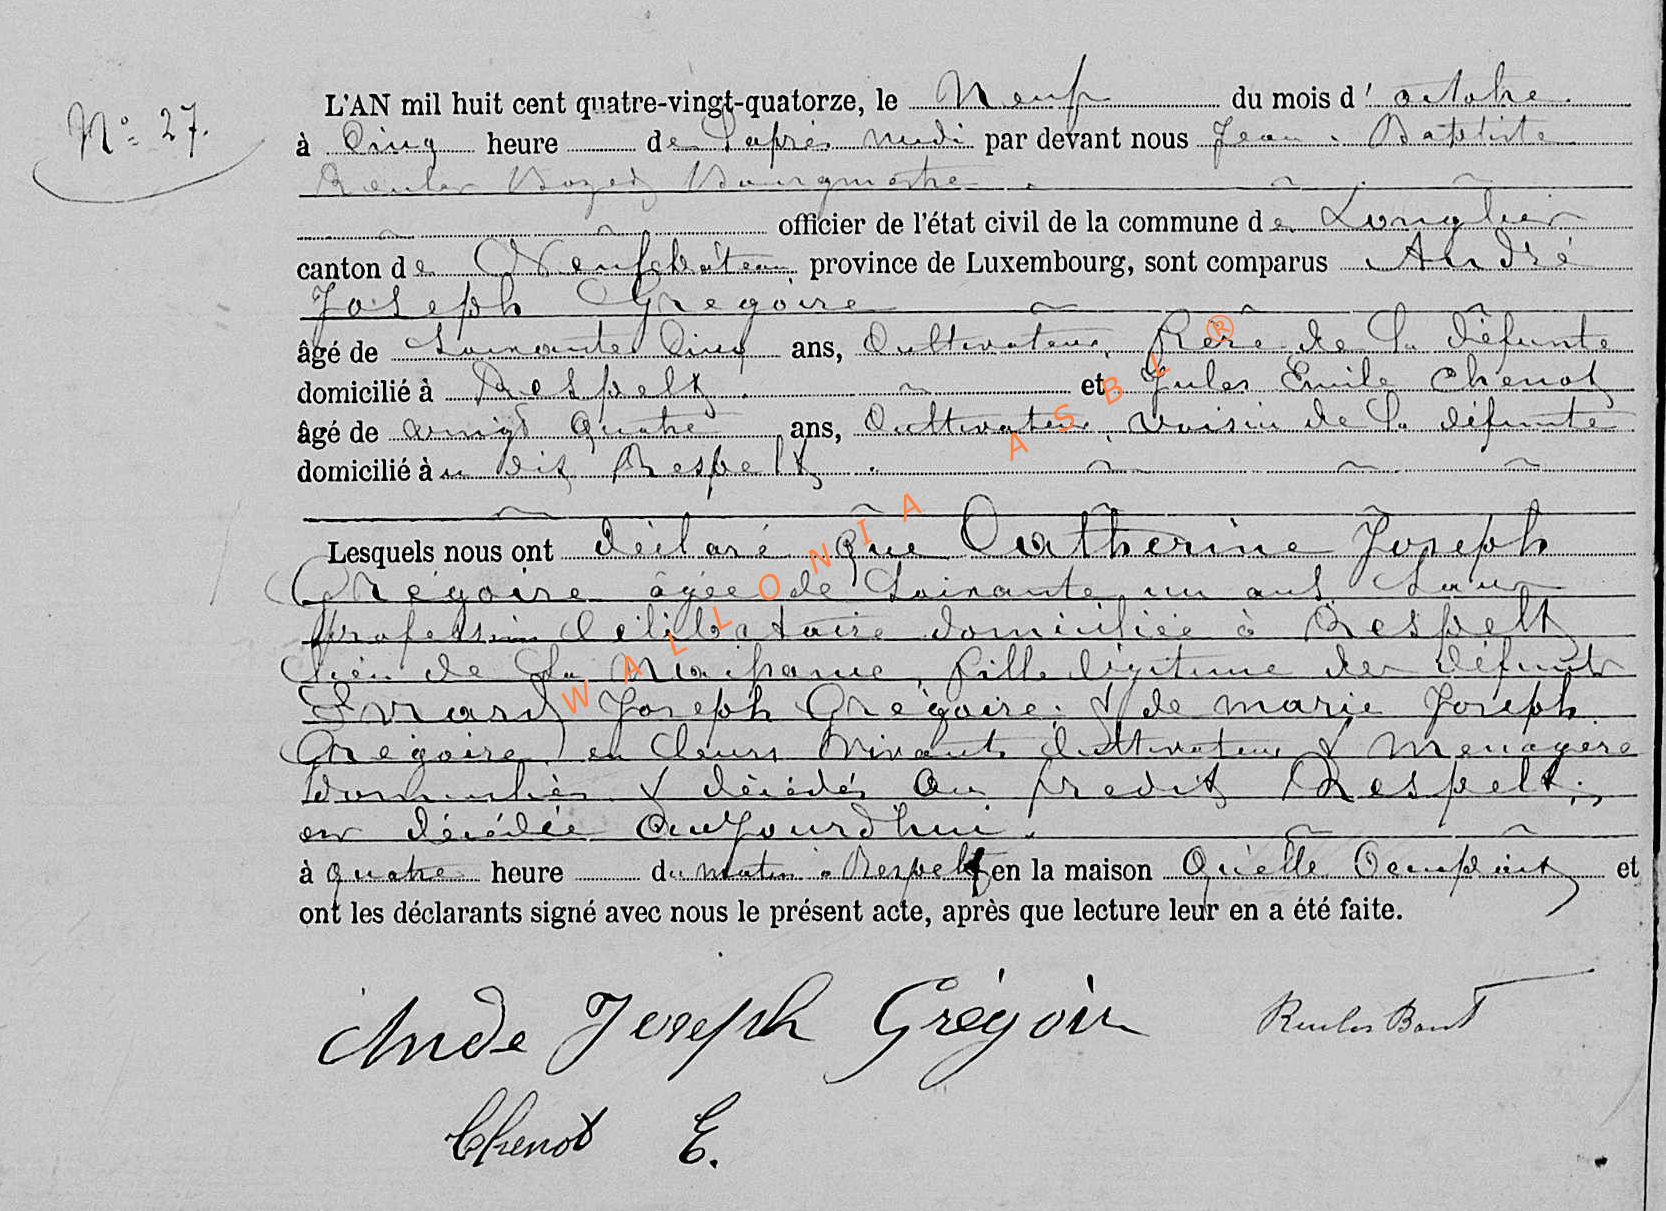 N° 27.
L'AN mil huit cent quatre-vingt-quatorze, le Neuf du mois d' octobre.
à Cinq heure de L'après midi par devant nous Jean-Baptiste
Bourgmestre
officier de l'état civil de la commune de Longlier
canton de Neufchâteau province de Luxembourg, sont comparus André
Joseph Grégoire
âgé de Soixante Cinq ans, Cultivateur, frère de La défunte
domicilié à Respelt. et Jules Emile Chenot
âgé de vingt quatre ans, Cultivateur, voisin de La défunte
domicilié à u dit Respelt.
Lesquels nous ont déclaré que Catherine Joseph
Grégoire âgée de Soixante un ans Sans
profession Célibataire domiciliée à Respelt
lieu de Sa Naissance, fille légitime des défunts
Evrard Joseph Grégoire, & de marie Joseph
Grégoire, en leurs vivants Cultivateur & Menagère
domiciliés & décédés Au predit Respelt;
est décédée Aujourd'hui.
à quatre heure du matin à Respelt en la maison Qu'elle Occupait et
ont les déclarants signé avec nous le présent acte, après que lecture leur en a été faite.
Ande Joseph Grégoir
Chenot E.
WALLONIA ASBL ®